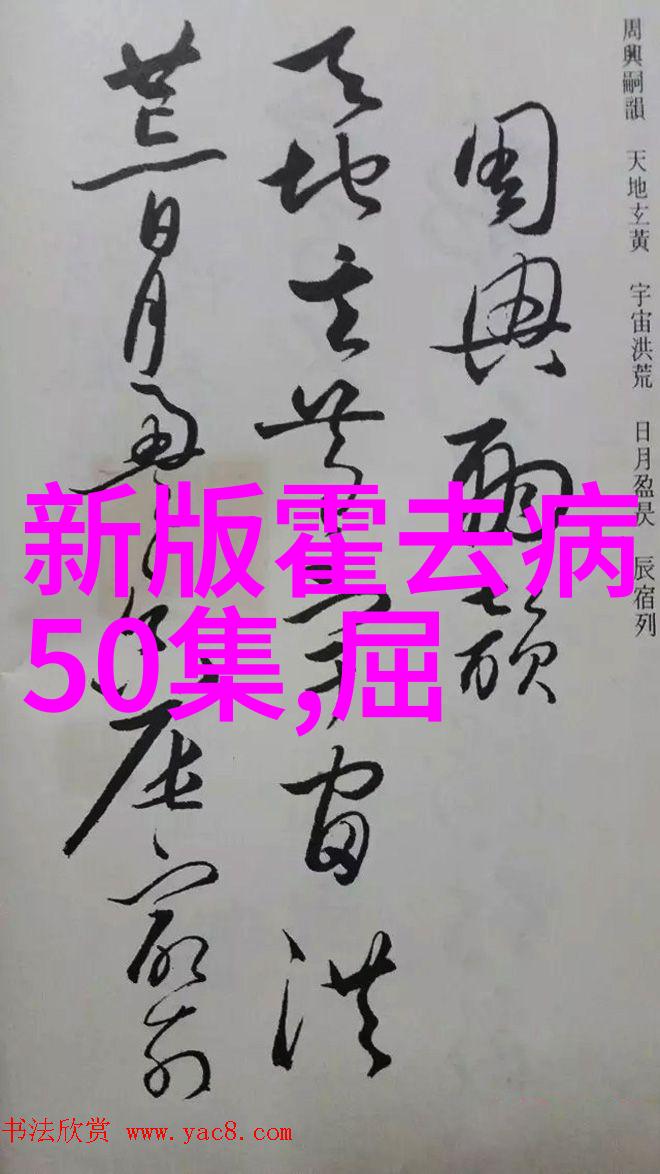 周興嗣韻 天地玄黃 宇宙洪荒 日月盈昃 辰宿列
周興嗣韻
天地玄黃宇宙洪
荒日月盈昃辰宿列
新版霍去病
50集,屈
书法欣赏 www.yac8.com